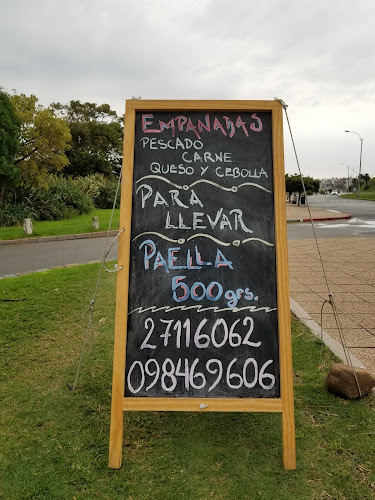 EMPANADAS
PESCADO
CARNE
QUESO Y CEBOLLA
PARA
LLEVAR
PAELLA
500grs.
27116062
098469606